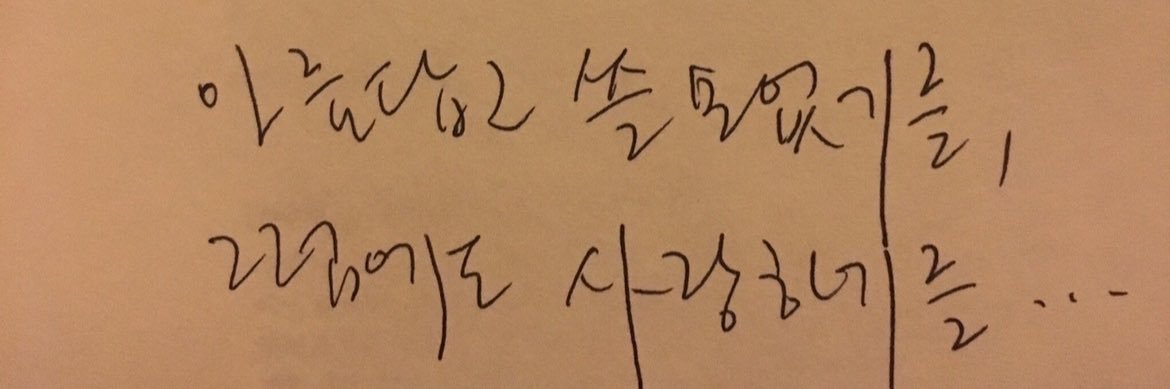 아름답고 쓸모없기를,
그럼에도 사랑하기를 ...